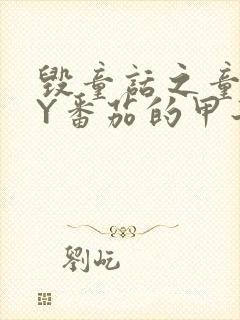 毁童话之童
Y番茄的甲
劉屹